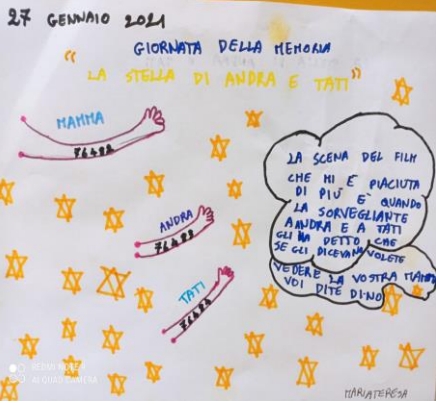 27 GENNAIO 2021
GIORNATA DELLA MEMORIA
"LA STELLA DI ANDRA E TATI"
MAMMA
ANDRA
TATI
LA SCENA DEL FILM
CHE MI È PIACIUTA
DI PIÙ È QUANDO
LA SORVEGLIANTE
A ANDRA E A TATI
GLI HA DETTO CHE
SE GLI DICEVANO VOLETE
VEDERE LA VOSTRA MAMMA
VOI DITE DI NO
MARIATERESA